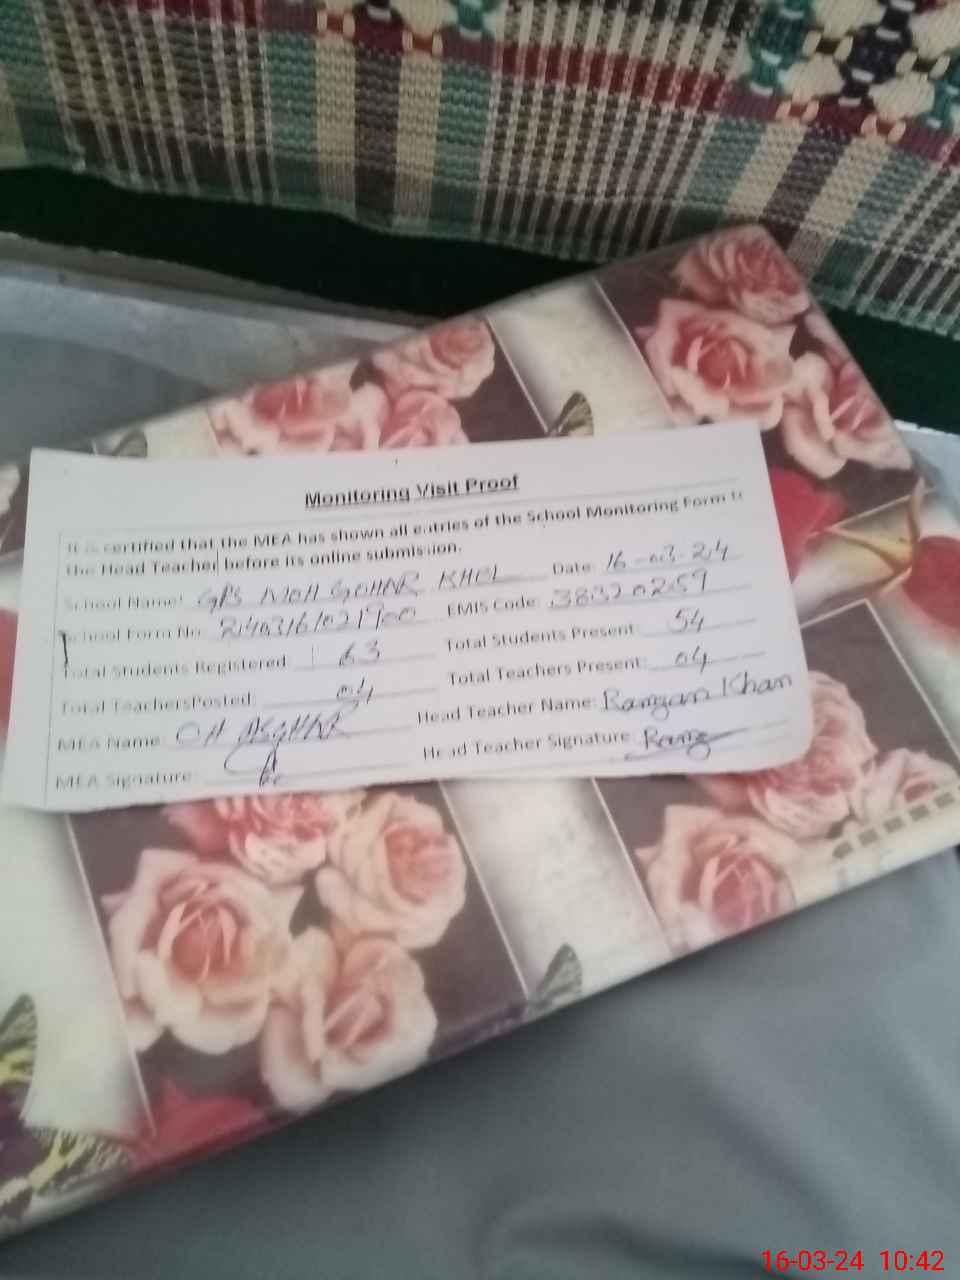 Monitoring Visit Proof
It is certified that the MEA has shown all entries of the School Monitoring Form to
the Head Teacher before its online submission.
School Name: GPS MOH GOHAR KHEL Date: 16-03-24
School Form No: 2403161021900 EMIS Code: 38320259
Total Students Registered: 63 Total Students Present: 54
Total TeachersPosted: 04 Total Teachers Present: 04
MEA Name: CH ASGHAR Head Teacher Name: Ramzan Khan
MEA Signature: Head Teacher Signature:
16-03-24 10:42